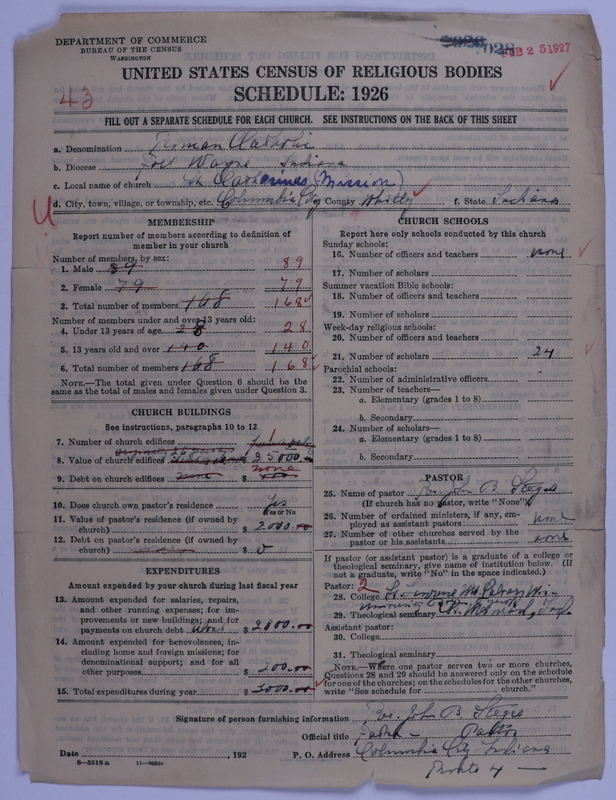 DEPARTMENT OF COMMERCE
BUREAU OF THE CENSUS
WASHINGTON
FEB 25 1927
UNITED STATES CENSUS OF RELIGIOUS BODIES
43
SCHEDULE: 1926
FILL OUT A SEPARATE SCHEDULE FOR EACH CHURCH. SEE INSTRUCTIONS ON THE BACK OF THIS SHEET
a. Denomination Roman Catholic
b. Diocese Fort Wayne Indiana
c. Local name of church St. Catharines (Mission)
d. City, town, village, or township, etc. Columbia City County Whitley f. State Indiana
MEMBERSHIP
Report number of members according to definition of member in your church
Number of members, by sex:
1. Male 89 89
2. Female 79 79
3. Total number of members 168 168
Number of members under and over 13 years old:
4. Under 13 years of age 28 28
5. 13 years old and over 140 140
6. Total number of members 168 168
NOTE.—The total given under Question 6 should be the
same as the total of males and females given under Question 3.
CHURCH BUILDINGS
See instructions, paragraphs 10 to 12
7. Number of church edifices 1
8. Value of church edifices $ 25000
9. Debt on church edifices none $ none
10. Does church own pastor's residence Yes
Yes or No
11. Value of pastor's residence (if owned by
church) $ 2000.00
12. Debt on pastor's residence (if owned by
church) $ 0
EXPENDITURES
Amount expended by your church during last fiscal year
13. Amount expended for salaries, repairs,
and other running expenses; for im-
provements or new buildings; and for
payments on church debt $ 2800.00
14. Amount expended for benevolences, in-
cluding home and foreign missions; for
denominational support; and for all
other purposes $ 200.00
15. Total expenditures during year $ 3000.00
CHURCH SCHOOLS
Report here only schools conducted by this church
Sunday schools:
16. Number of officers and teachers none
17. Number of scholars
Summer vacation Bible schools:
18. Number of officers and teachers
19. Number of scholars
Week-day religious schools:
20. Number of officers and teachers
21. Number of scholars 24
Parochial schools:
22. Number of administrative officers
23. Number of teachers—
a. Elementary (grades 1 to 8)
b. Secondary
24. Number of scholars—
a. Elementary (grades 1 to 8)
b. Secondary
PASTOR
25. Name of pastor Rev. John B. Steges
(If church has no pastor, write "None")
26. Number of ordained ministers, if any, em-
ployed as assistant pastors none
27. Number of other churches served by the
pastor or his assistants none
If pastor (or assistant pastor) is a graduate of a college or
theological seminary, give name of institution below. (If
not a graduate, write "No" in the space indicated.)
Pastor: 2
28. College St. Lawrence Mt. Calvary Wis.
29. Theological seminary St. Meinrad, Ind.
Assistant pastor:
30. College
31. Theological seminary
NOTE.—Where one pastor serves two or more churches,
Questions 28 and 29 should be answered only on the schedule
for one of the churches; on the schedules for the other churches,
write "See schedule for church."
Signature of person furnishing information Rev. John B. Steges
Official title Pastor
Date , 192 P. O. Address Columbia City Indiana
8-5518a 11-9054a
Route 4